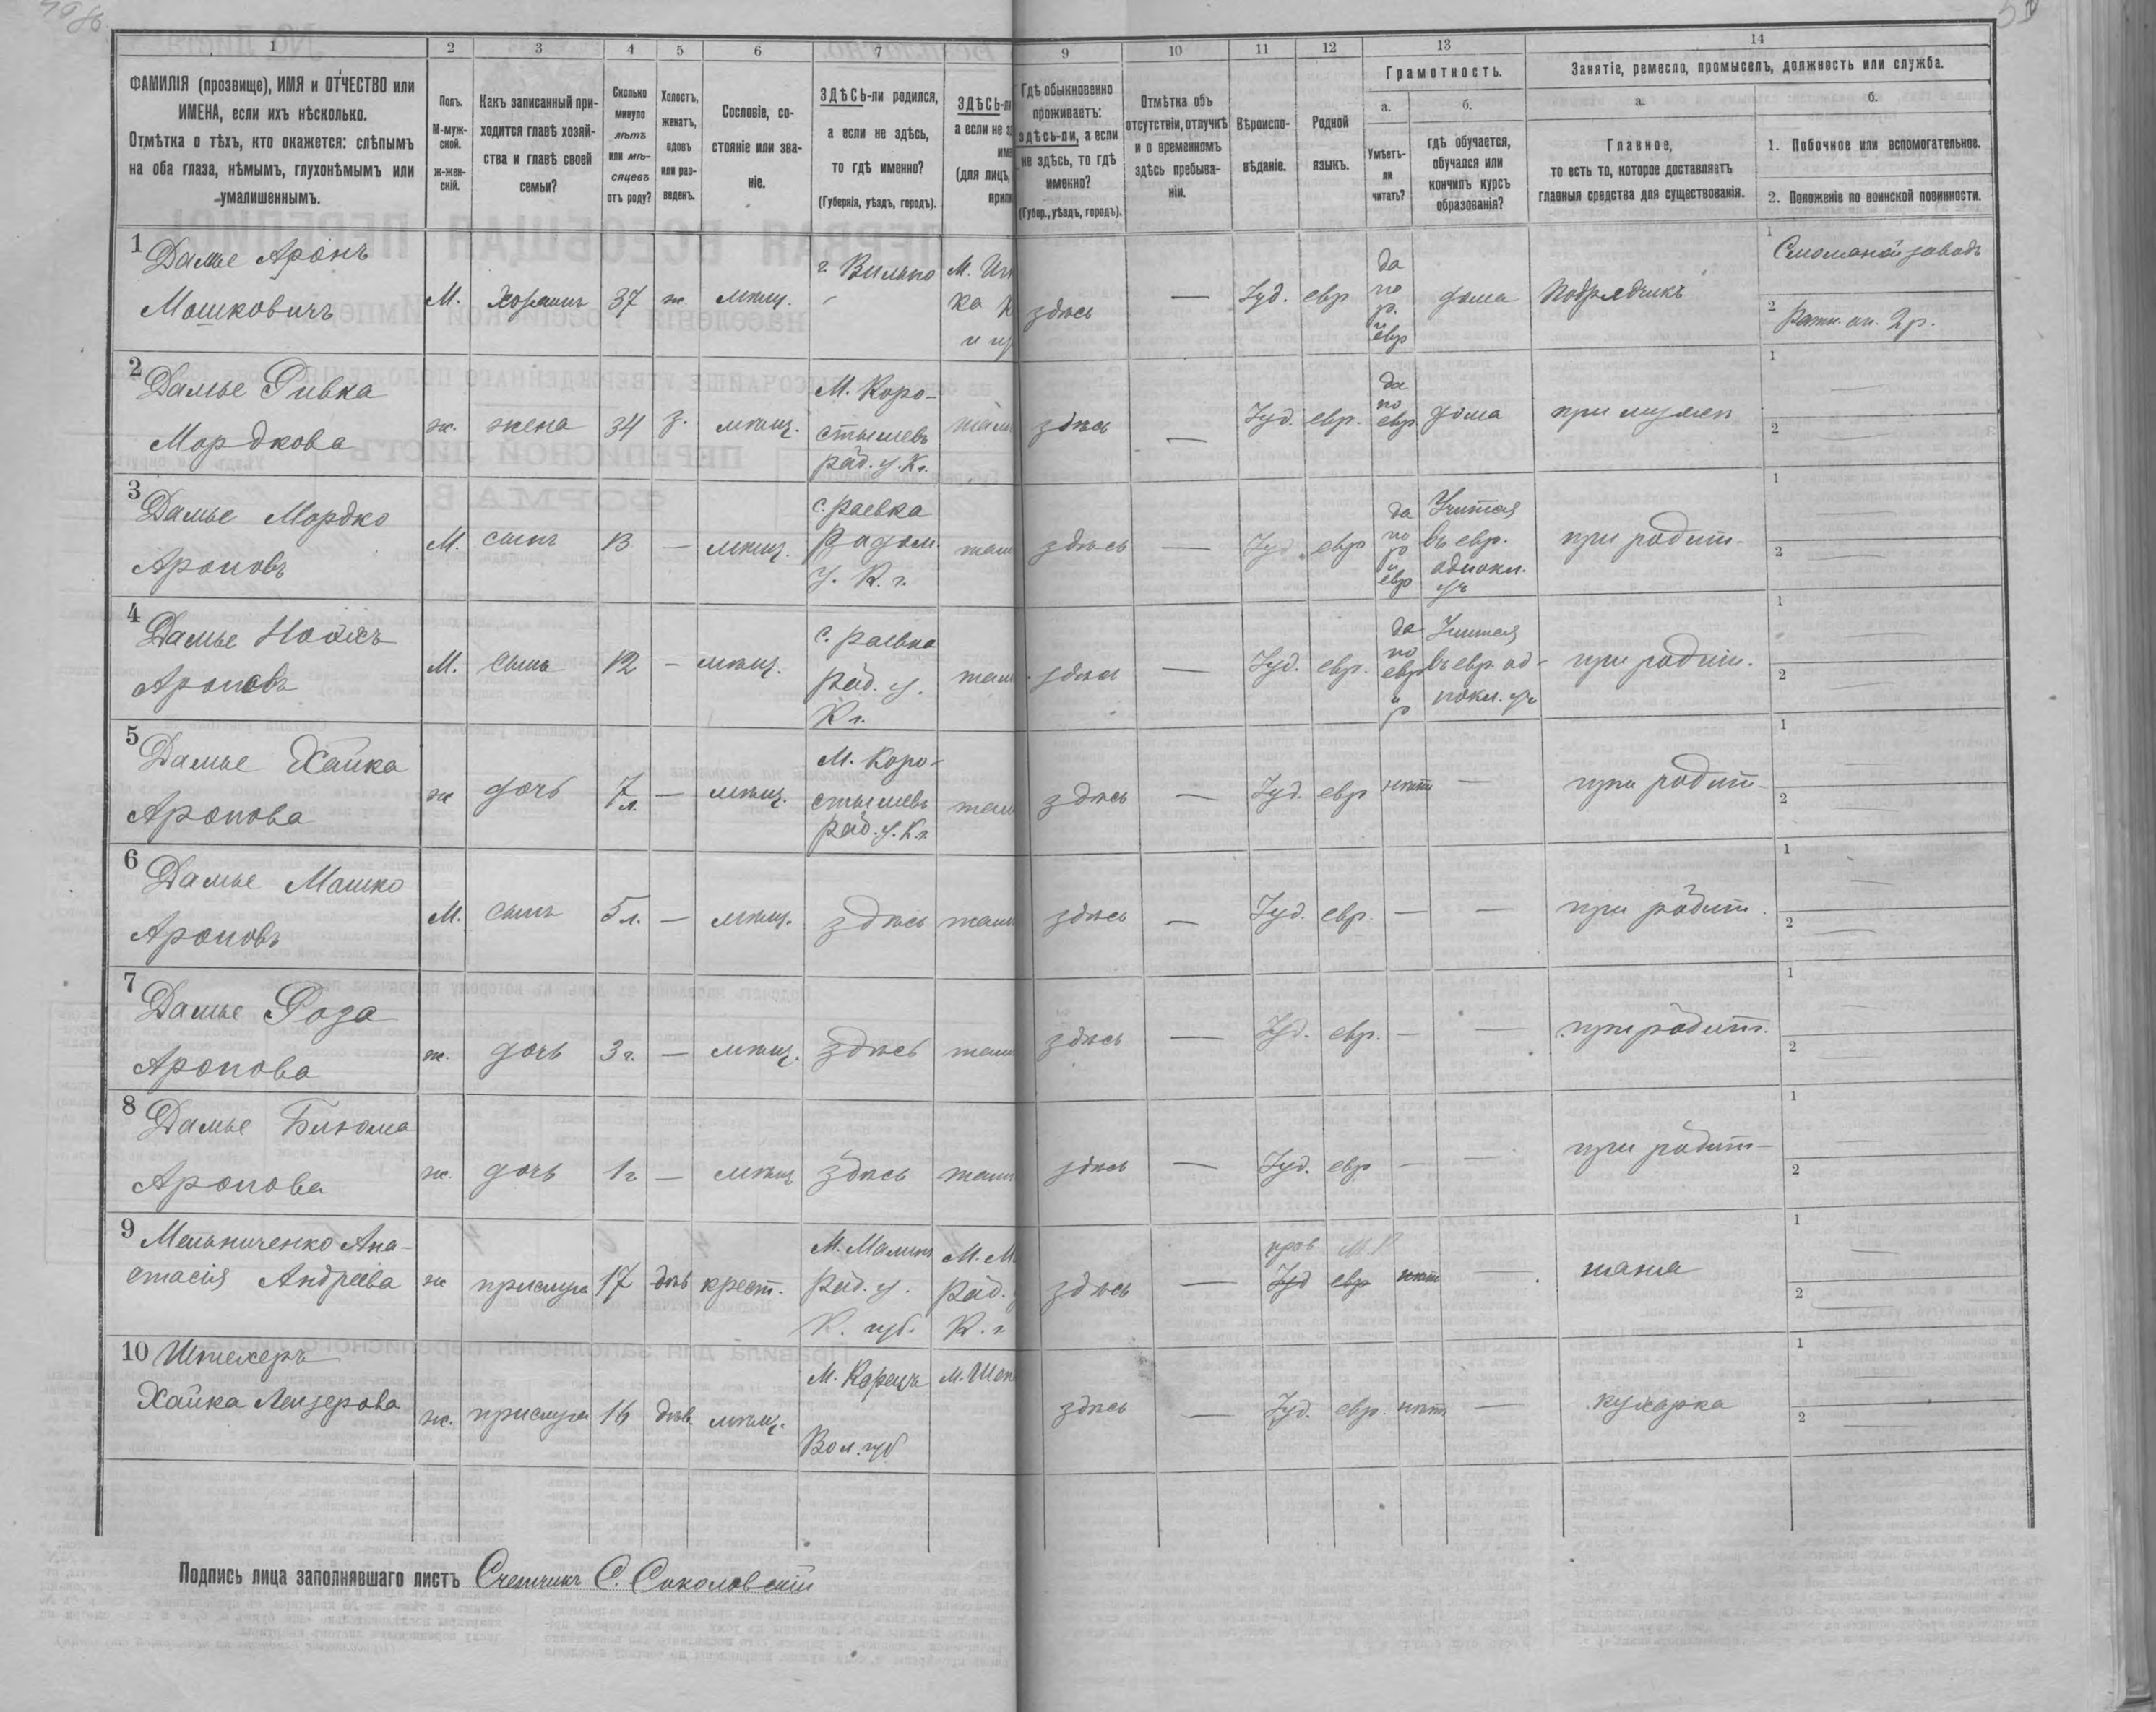 1 2 3 4 5 6 7 9 10 11 12 13 14
ФАМИЛІЯ (прозвище), ИМЯ и ОТЧЕСТВО или
ИМЕНА, если ихъ нѣсколько.
Отмѣтка о тѣхъ, кто окажется: слѣпымъ
на оба глаза, нѣмымъ, глухонѣмымъ или
умалишеннымъ.
Полъ.
М-муж-
ской.
ж-жен-
скій.
Какъ записанный при-
ходится главѣ хозяй-
ства и главѣ своей
семьи?
Сколько
минуло
лѣтъ
или мѣ-
сяцевъ
отъ роду?
Холостъ,
женатъ,
вдовъ
или раз-
веденъ.
Сословіе, со-
стояніе или зва-
ніе.
ЗДѢСЬ-ли родился,
а если не здѣсь,
то гдѣ именно?
(Губернія, уѣздъ, городъ).
ЗДѢСЬ-ли
а если не
(для лицъ,
Гдѣ обыкновенно
проживаетъ:
здѣсь-ли, а если
не здѣсь, то гдѣ
именно?
(Губер., уѣздъ, городъ).
Отмѣтка объ
отсутствіи, отлучкѣ
и о временномъ
здѣсь пребыва-
ніи.
Вѣроиспо-
вѣданіе.
Родной
языкъ.
Грамотность.
а.
Умѣетъ-
ли
читать?
б.
гдѣ обучается,
обучался или
кончилъ курсъ
образованія?
Занятіе, ремесло, промыселъ, должность или служба.
а.
Главное,
то есть то, которое доставляетъ
главныя средства для существованія.
б.
1. Побочное или вспомогательное.
2. Положеніе по воинской повинности.
1 Дамье Аронъ
Мошковичъ
М.
хозяинъ
37
ж.
мѣщ.
г. Вильно
здѣсь
—
Іуд.
евр
да
по
р.
и
евр
дома
Подрядчикъ
1
заводъ
2 Ратн. оп. 2 р.
2 Дамье Ривка
Мордкова
ж.
жена
34
з.
мѣщ.
М. Коро-
стышевъ
рад. у. К г.
там
здѣсь
—
Іуд.
евр.
да
по
евр
дома
при мужѣ
1 —
2 —
3 Дамье Мордко
Ароновъ
М.
сынъ
13
—
мѣщ.
с. Раевка
Радом.
у. К. г.
там
здѣсь
—
Іуд
евр
да
по
р
и
евр
Учится
въ евр.
однокл.
уч
при родит-
1 —
2 —
4 Дамье
Ароновъ
М.
сынъ
12
—
мѣщ.
с. Раевка
рад. у.
К г.
там
здѣсь
—
Іуд.
евр.
да
по
евр
и
р
Учится
въ евр. од-
нокл. уч
при родит.
1 —
2 —
5 Дамье Хайка
Аронова
ж
дочь
7
л.
—
мѣщ.
М. Коро-
стышевъ
рад. у. К. г
там
здѣсь
—
Іуд.
евр
нѣтъ
—
при родит
1 —
2 —
6 Дамье Мошко
Ароновъ
М.
сынъ
5 л.
—
мѣщ.
здѣсь
там
здѣсь
—
Іуд.
евр.
—
—
при родит.
1 —
2 —
7 Дамье Роза
Аронова
ж.
дочь
3 г.
—
мѣщ.
здѣсь
там
здѣсь
—
Іуд.
евр.
—
—
при родит.
1 —
2 —
8 Дамье Блюма
Аронова
ж.
дочь
1 г
—
мѣщ
здѣсь
там
здѣсь
—
Іуд.
евр
—
—
при родит-
1 —
2 —
9 Мельниченко Ана-
стасія Андреева
ж
прислуга
17
дѣв
крест.
М. Малинъ
рад. у.
К. губ.
М. М
Рад.
К. г
здѣсь
—
прав М.Р
Іуд евр
нѣтъ
—
няня
1 —
2 —
10 Штекеръ
Хайка Лейзерова
ж.
прислуга
16
дѣв.
мѣщ.
М. Корецъ
Вол. губ
М. Шеп
здѣсь
—
Іуд.
евр
нѣтъ
—
кухарка
1 —
2 —
Подпись лица заполнявшаго листъ Счетчикъ С. Соколовскій